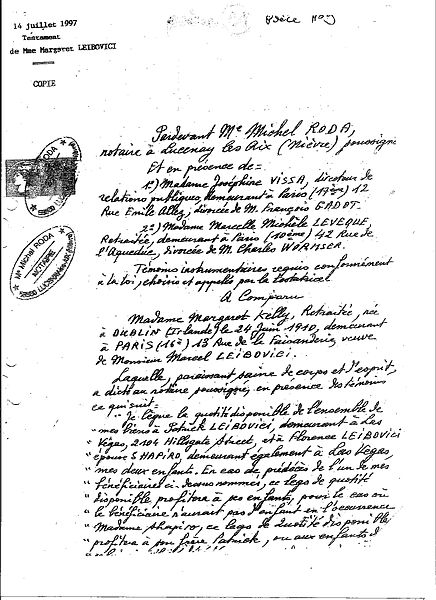 14 juillet 1997
Testament
de Mme Margaret LEIBOVICI
COPIE
Pièce N°
Me Michel RODA
NOTAIRE
Pardevant Me Michel RODA,
notaire à Lucenay les Aix (Nièvre) soussigné
Et en présence de =
1°) Madame Joséphine VISSA, directeur de
relations publiques demeurant à Paris (17ème) 12
Rue Emile Allez, divorcée de M. François GADOT.
2°) Madame Marcelle Michèle LEVEQUE,
Retraitée, demeurant à Paris (10ème) 42 Rue de
l'Aqueduc, divorcée de M. Charles WORMSER.
Témoins instrumentaires requis conformément
à la loi, choisis et appelés par la testatrice.
A Comparu
Madame Margaret Kelly, Retraitée, née
à DUBLIN (Irlande) le 24 Juin 1910, demeurant
à PARIS (16e) 13 Rue de la Faisanderie, veuve
de Monsieur Marcel LEIBOVICI.
Laquelle, paraissant saine de corps et d'esprit,
a dicté au notaire soussigné, en présence des témoins
ce qui suit =
"Je lègue la quotité disponible de l'ensemble de
" mes biens à Patrick LEIBOVICI, demeurant à Las
" Vegas, 2104 Hillgate Street, et à Florence LEIBOVICI
" épouse SHAPIRO, demeurant également à Las Vegas,
" mes deux enfants. En cas de prédécès de l'un de mes
" bénéficiaires ci-dessus nommés, ce legs de quotité
" disponible profitera à ses enfants, pour le cas où
" le bénéficiaire n'aurait pas d'enfant en l'occurrence
" Madame Shapiro, ce legs de Quotité disponible
" profitera à son frère Patrick, ou aux enfants de